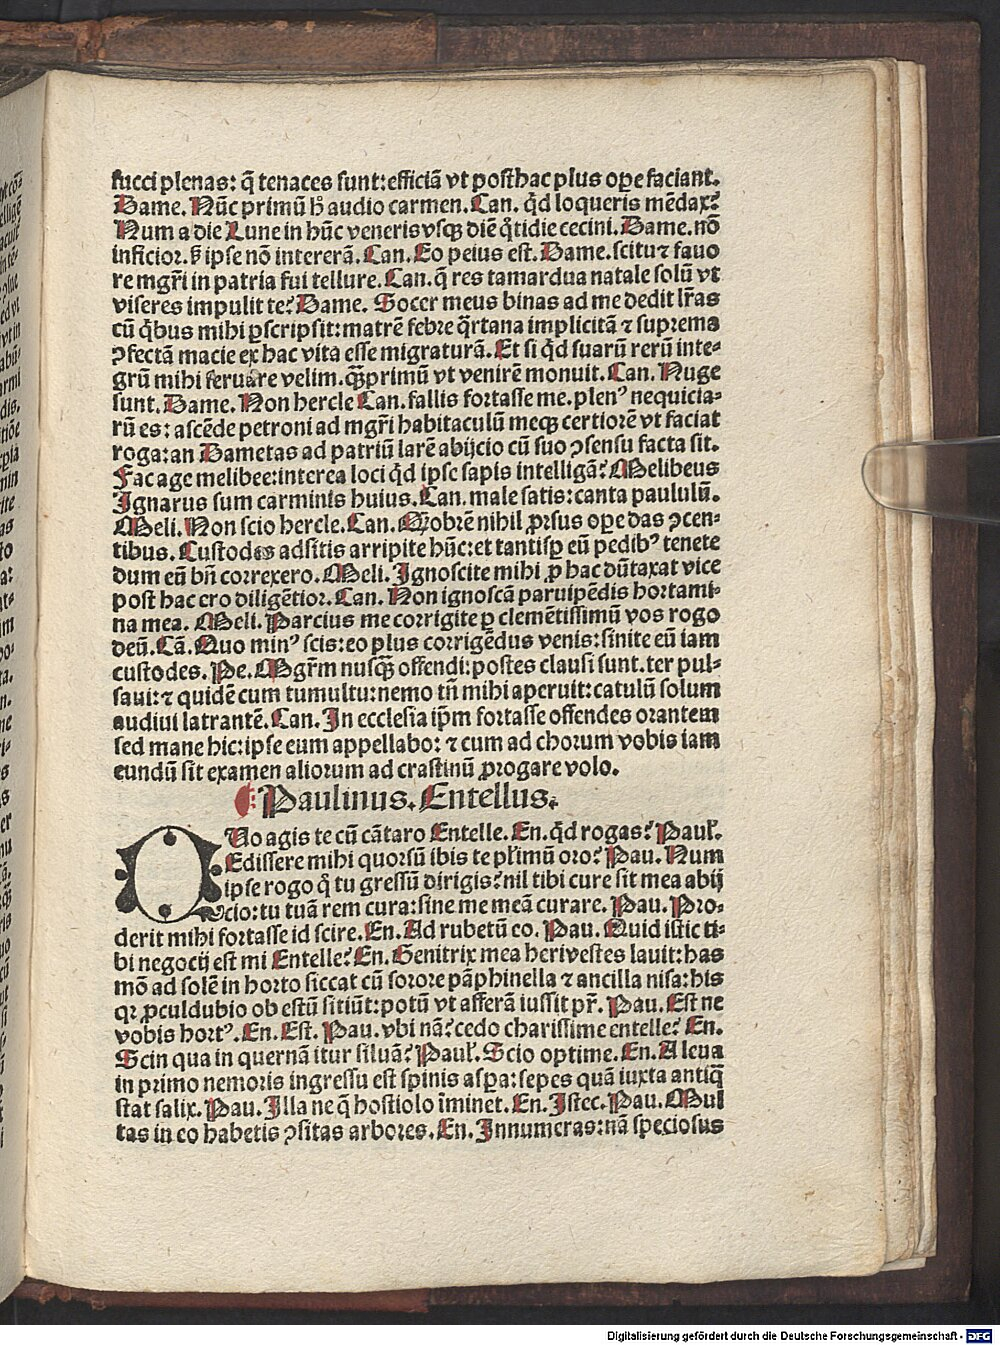 succi plenas: q̄ tenaces sunt:efficiā vt posthac plus oꝑe faciant.
Dame. Nūc primū h̄ audio carmen. Can. qd̄ loqueris mēdax?
Num a die Lune in hūc veneris vsqꝫ diē q̄tidie cecini. Dame. nō
inficior. ꝗ ipse nō intererā. Can. Eo peius est. Dame. scitu ⁊ fauo
re mgr̄i in patria fui tellure. Can. q̄ res tam ardua natale solū vt
viseres impulit te? Dame. Socer meus binas ad me dedit lr̄as
cū q̄bus mihi ꝑscripsit: matrē febre q̄rtana implicitā ⁊ suprema
ꝯfectā macie ex hac vita esse migraturā. Et si qd̄ suarū rerū inte-
grū mihi seruare velim. qꝫprimū vt venirē monuit. Can. Nuge
sunt. Dame. Non hercle Can. fallis fortasse me. plenꝰ nequicia-
rū es: ascēde petroni ad mgr̄i habitaculū meqꝫ certiorē vt faciat
roga: an Dametas ad patriū larē abijcio cū suo ꝯsensu facta sit.
Fac age melibee: interea loci qd̄ ipse sapis intelligā? Melibeus
Ignarus sum carminis huius. Can. male satis: canta paululū.
Meli. Non scio hercle. Can. Qꝫobrē nihil ꝓrsus oꝑe das ꝯcen-
tibus. Custodes adsitis arripite hūc: et tantisꝑ eū pedibꝰ tenete
dum eū bn̄ correxero. Meli. Ignoscite mihi ꝓ hac dūtaxat vice
post hac ero diligētior. Can. Non ignoscā paruipēdis hortami-
na mea. Meli. Parcius me corrigite ꝑ clemētissimū vos rogo
deū. Cā. Quo minꝰ scis: eo plus corrigēdus venis: sinite eū iam
custodes. Pe. Mgr̄m nusqꝫ offendi: postes clausi sunt. ter pul-
saui: ⁊ quidē cum tumultu: nemo tn̄ mihi aperuit: catulū solum
audiui latrantē. Can. In ecclesia ip̄m fortasse offendes orantem
sed mane hic: ipse eum appellabo: ⁊ cum ad chorum vobis iam
eundū sit examen aliorum ad crastinū ꝓrogare volo.
Paulinus. Entellus.
QUo agis te cū cātaro Entelle. En. qd̄ rogas? Paul̄.
Edissere mihi quorsū ibis te pl̄imū oro? Pau. Num
ipse rogo q̄ tu gressū dirigis? nil tibi cure sit mea abij
cio: tu tuā rem cura: sine me meā curare. Pau. Pro-
derit mihi fortasse id scire. En. Ad rubetū eo. Pau. Quid istic ti-
bi negocij est mi Entelle? En. Genitrix mea heri vestes lauit: has
mō ad solē in horto siccat cū sorore pāphinella ⁊ ancilla nisa: his
qꝛ ꝓculdubio ob estū sitiūt: potū vt afferā iussit pr̄. Pau. Est ne
vobis hortꝰ. En. Est. Pau. vbi nā? cedo charissime entelle? En.
Scin qua in quernā itur siluā? Paul̄. Scio optime. En. A leua
in primo nemoris ingressu est spinis asꝑa: sepes quā iuxta antiq̄
stat salix. Pau. Illa ne q̄ hostiolo īminet. En. Istec. Pau. Mul
tas in eo habetis ꝯsitas arbores. En. Innumeras: nā speciosus
Digitalisierung gefördert durch die Deutsche Forschungsgemeinschaft - DFG